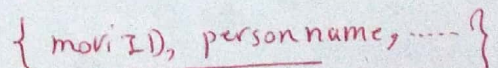 { moviID, person name, ..... }